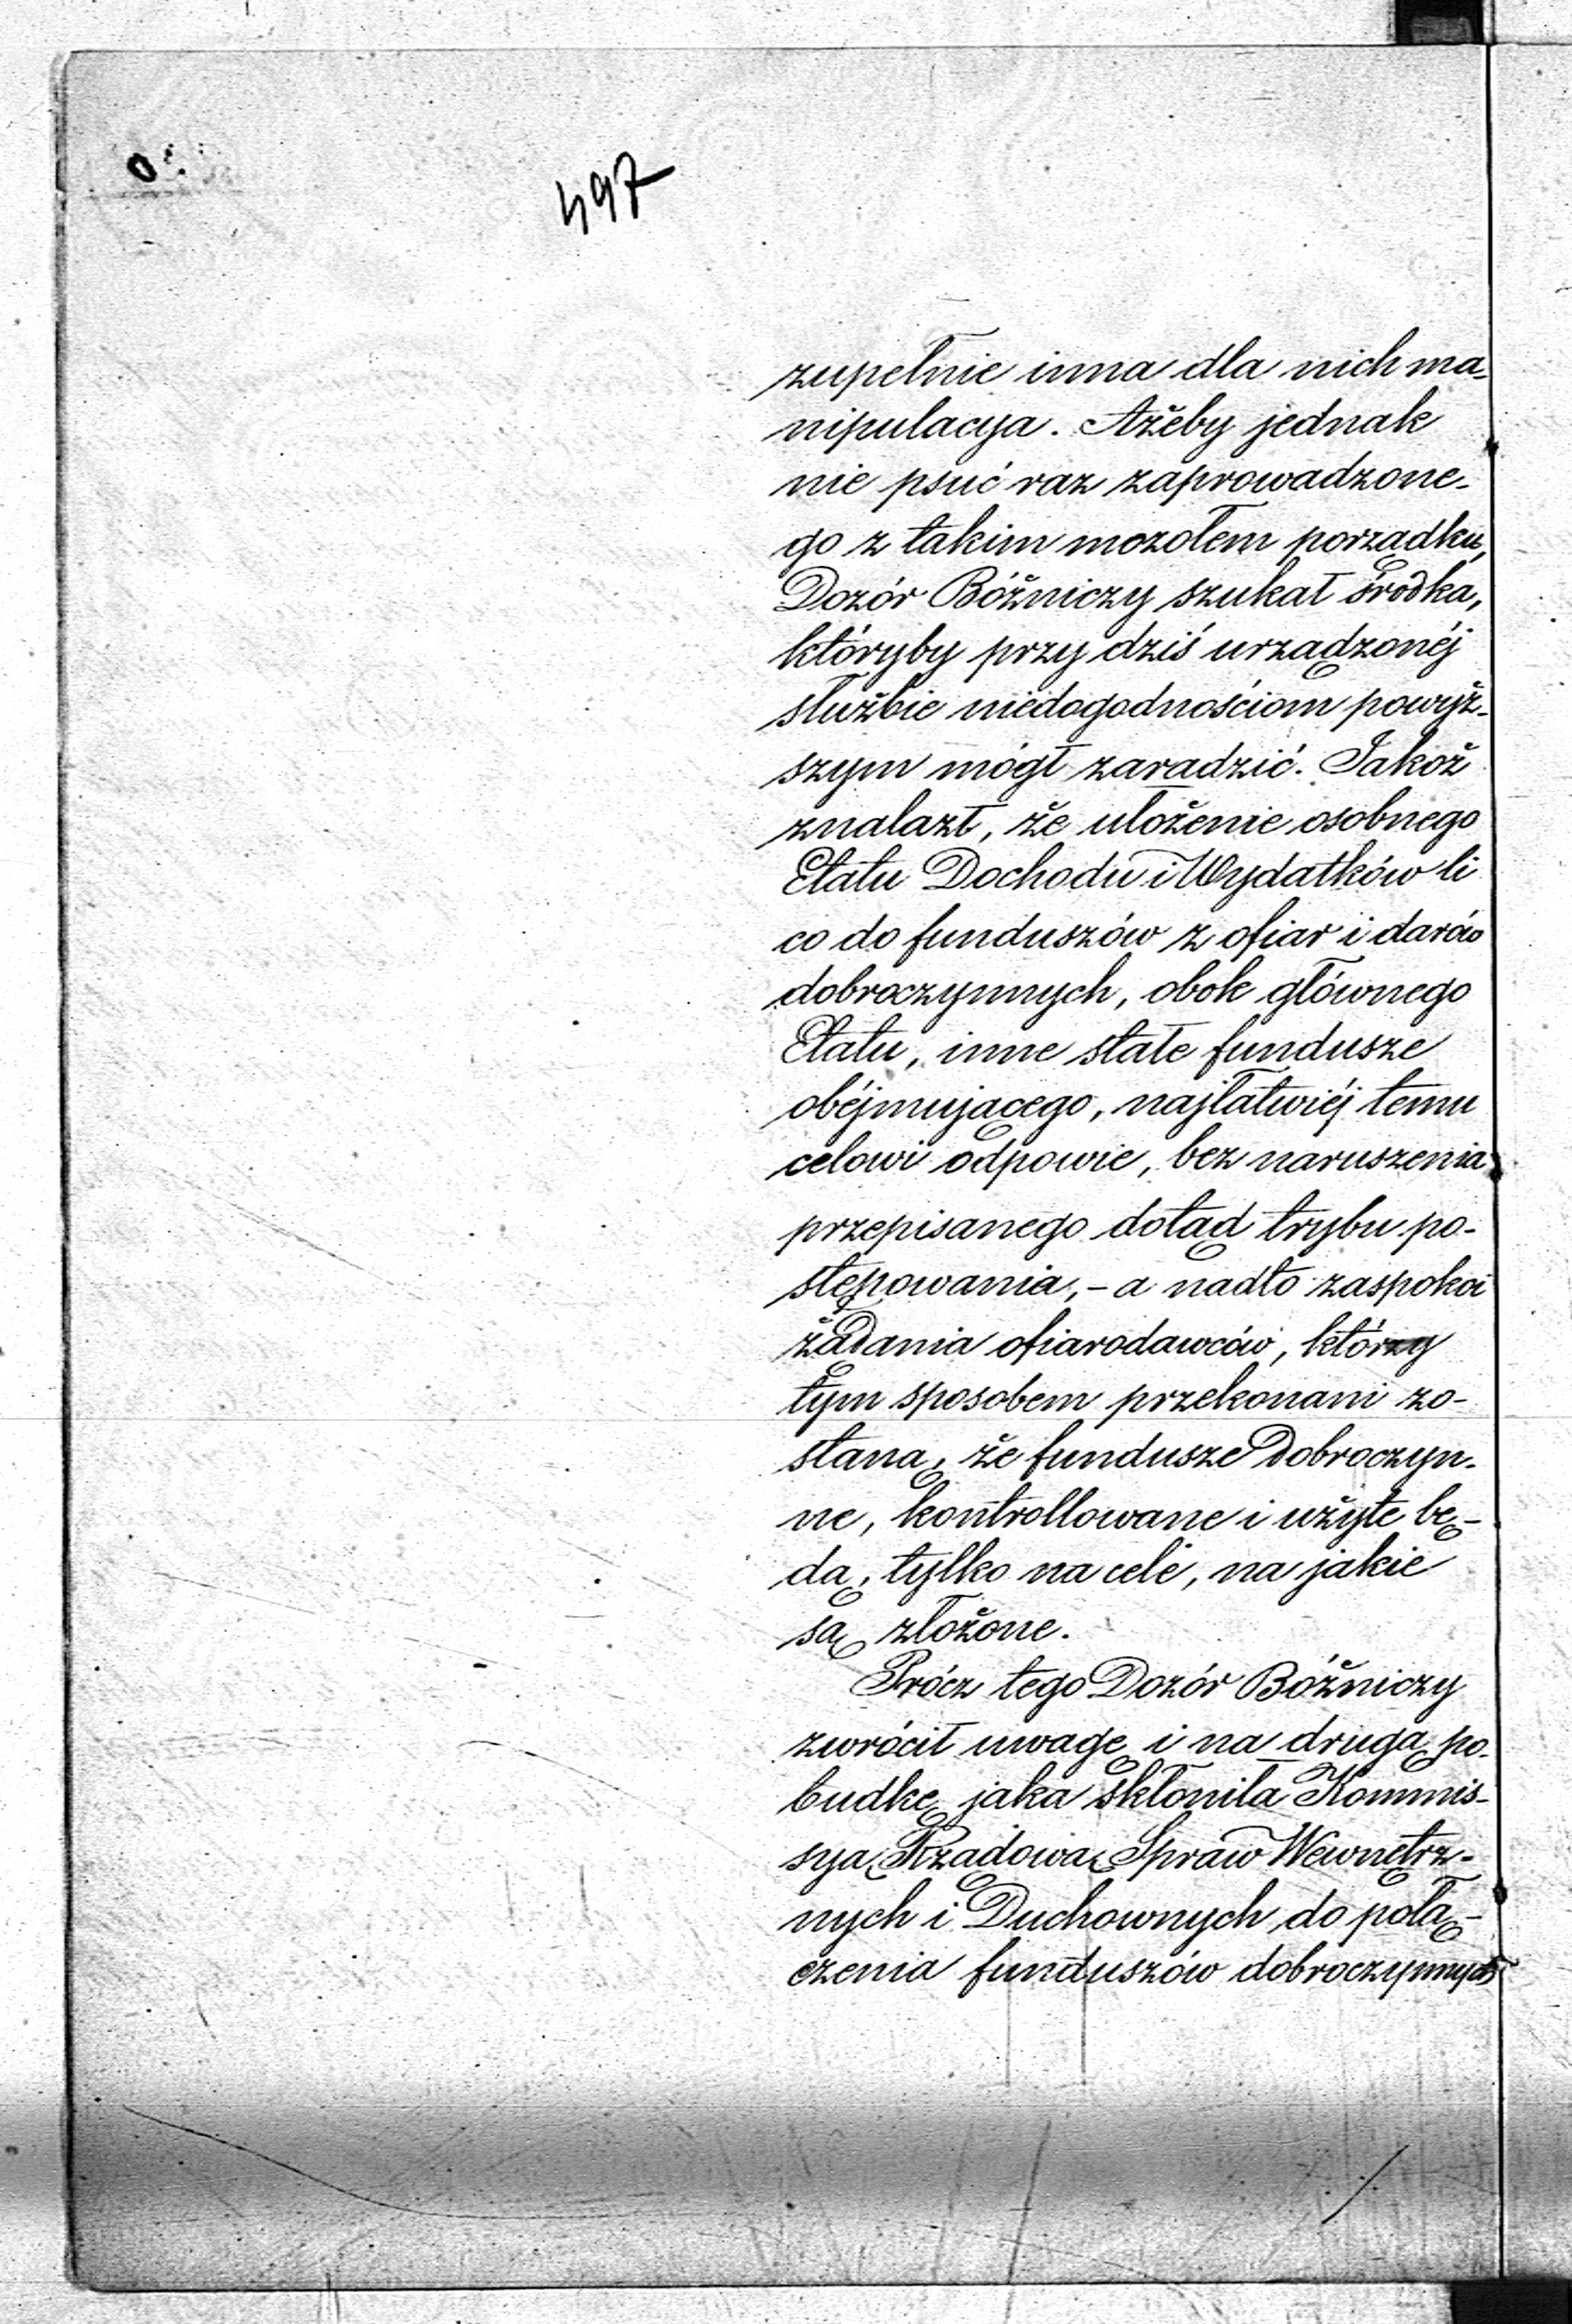 497
zupełnie inna dla nich ma-
nipulacya. Ażeby jednak
nie psuć raz zaprowadzone-
go z takim mozołem porządku,
Dozór Bóżniczy szukał środka,
któryby przy dziś urządzonéj
służbie niedogodnościom powyż-
szym mógł zaradzić. Jakoż
znalazł, że ułożenie osobnego
Etatu Dochodu i Wydatków li
co do funduszów z ofiar i darów
dobroczynnych, obok głównego
Etatu, inne stałe fundusze
obéjmującego, najłatwiéj temu
celowi odpowie, bez naruszenia
przepisanego dotąd trybu po-
stępowania, - a nadto zaspokoi
żądania ofiarodawców, którzy
tym sposobem przekonani zo-
staną, że fundusze Dobroczyn-
ne, kontrollowane i użyte bę-
dą, tylko na cele, na jakie
są złożone.
Prócz tego Dozór Bóżniczy
zwrócił uwagę i na drugą po-
budkę jaka skłoniła Kommis-
syą Rządową Spraw Wewnętrz-
nych i Duchownych do połą-
czenia funduszów dobroczynnych